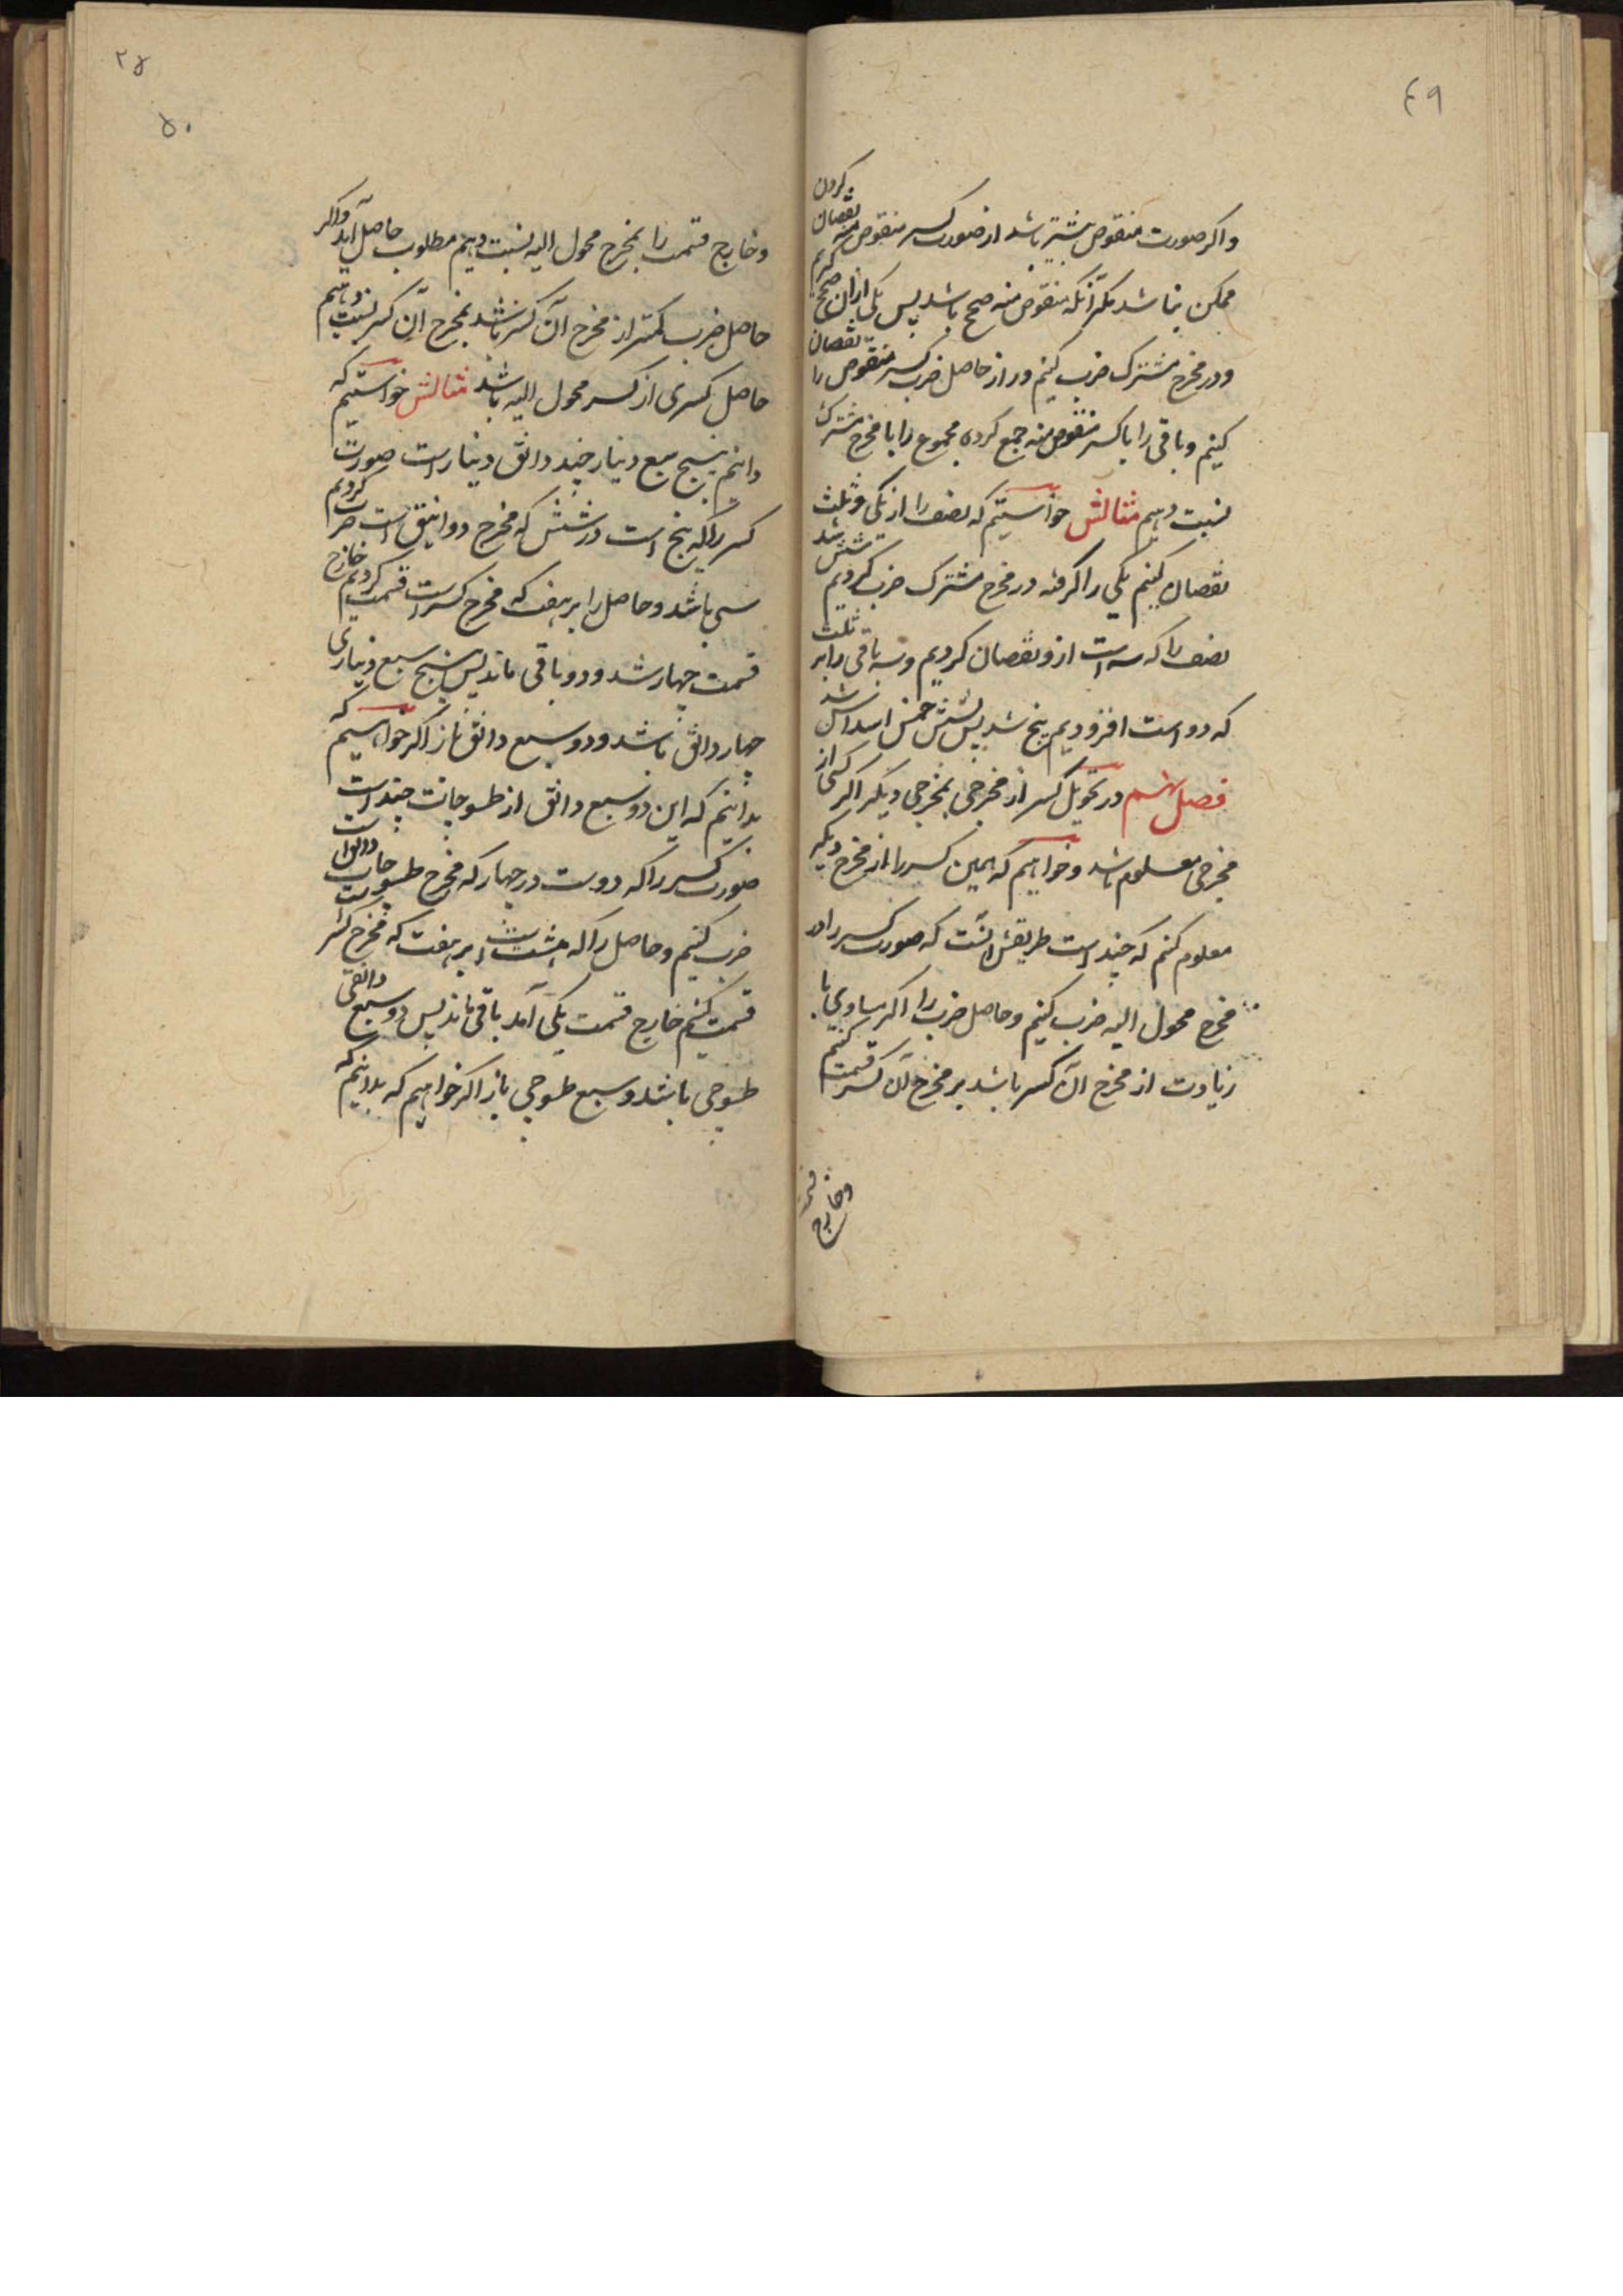 ٤٩
و اگر صورت منقوص بیشتر باشد از صورت کسر منقوص منه نقصان کردن
ممکن نباشد مگر آنکه منقوص منه صحیح باشد پس یکی ازان صحیح گیریم
و در مخرج مشترک ضرب کنیم و از حاصل ضرب کسر منقوص را نقصان
کنیم و باقی را با کسر منقوص منه جمع کرده مجموع را با مخرج مشترک
نسبت دهیم مثالش خواستیم که نصف را از یکی و ثلث
نقصان کنیم یکی را گرفته در مخرج مشترک ضرب کردیم شش شد
نصف را که سه است ازو نقصان کردیم و سه باقی را بر ثلث
که دو است افزودیم پنج شد پس خمس اسداس شد
فصل نهم در تحویل کسر از مخرجی بمخرجی دیگر اگر کسی از
مخرجی معلوم باشد و خواهیم که همین کسر را از مخرج دیگر
معلوم کنم که چند است طریقش آنست که صورت کسر را در
مخرج محول الیه ضرب کنیم و حاصل ضرب را اگر مساوی یا
زیادت از مخرج آن کسر باشد بر مخرج آن کسر قسمت کنیم
وخارج
٢٥
٥٠
و خارج قسمت را بمخرج محول الیه نسبت دهیم مطلوب حاصل آید و اگر
حاصل ضرب کمتر از مخرج آن کسر باشد بمخرج آن کسر نسبت دهیم
حاصل کسری از کسر محول الیه باشد مثالش خواستیم که
دانیم پنج سبع دینار چند دانق دینار است صورت
کسر را که پنج است در شش که مخرج دوانیق است ضرب کردیم
سی باشد و حاصل را بر هفت که مخرج کسر است قسمت کردیم خارج
قسمت چهار شد و دو باقی ماند پس پنج سبع دیناری
چهار دانق باشد و دو سبع دانق باز اگر خواهیم که
بدانیم که این دو سبع دانق از طسوجات چند است
صورت کسر را که دوست در چهار که مخرج طسوجات
ضرب کنیم و حاصل را که هشت است بر هفت که مخرج کسر
قسمت کنیم خارج قسمت یکی آمد باقی ماند پس دو سبع دانقی
طسوجی باشد و سبع طسوجی باز اگر خواهیم که بدانیم که